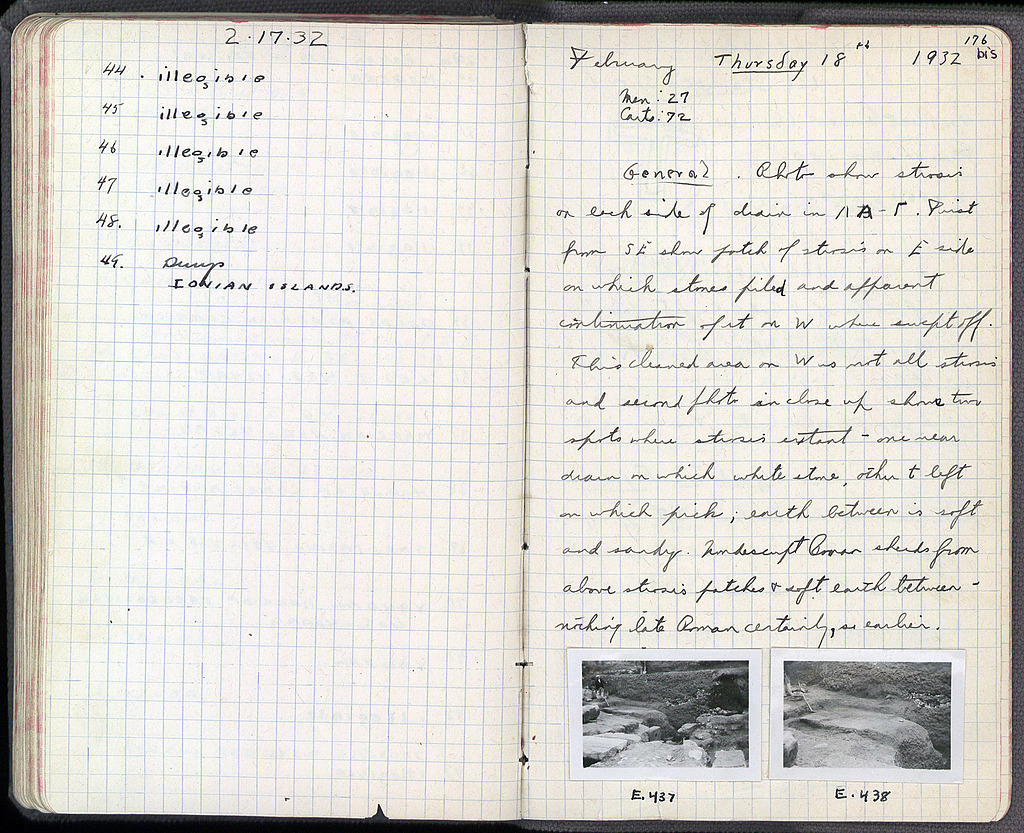 2·17·32
44. illegible
45 illegible
46 illegible
47 illegible
48. illegible
49. Dump
IONIAN ISLANDS.
176
bis
February Thursday 18th 1932
Men: 27
Carts: 72
General. Photo show strosis
on each side of drain in 11 A-Γ. First
from SE show patch of strosis on E side
on which stones piled and apparent
continuation of it on W where swept off.
This cleaned area on W is not all strosis
and second photo in close up shows two
spots where strosis extant - one near
drain on which white stone, other to left
on which pick; earth between is soft
and sandy. Nondescript Roman sherds from
above strosis patches & soft earth between -
nothing late Roman certainly, so earlier.
E.437
E.438